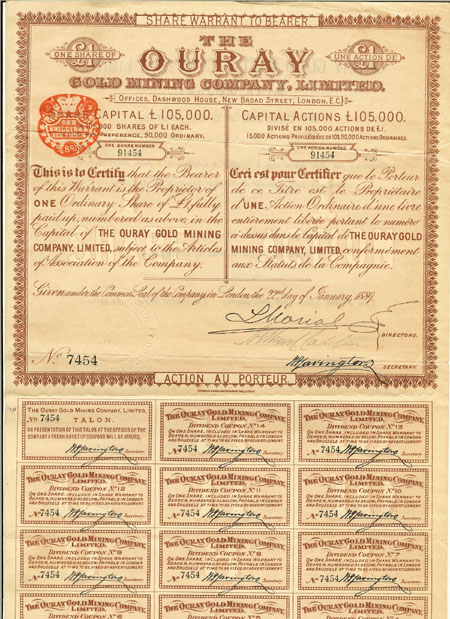 SHARE WARRANT TO BEARER
£1 ONE SHARE OF
THE
UNE ACTION DE £1
OURAY
GOLD MINING COMPANY, LIMITED.
OFFICES, DASHWOOD HOUSE, NEW BROAD STREET, LONDON, E.C.
CAPITAL £105,000.
SHARES OF £1 EACH.
PREFERENCE, 90,000 ORDINARY.
ONE SHARE NUMBER
91454
This is to Certify that the Bearer
of this Warrant is the Proprietor of
ONE Ordinary Share of £1, fully
paid up, numbered as above, in the
Capital of THE OURAY GOLD MINING
COMPANY, LIMITED, subject to the Articles
of Association of the Company.
CAPITAL ACTIONS £105,000.
DIVISÉ EN 105,000 ACTIONS DE £1.
15,000 ACTIONS PRIVILÉGIÉES ET 90,000 ACTIONS ORDINAIRES.
UNE ACTION NUMÉRO
91454
Ceci est pour Certifier que le Porteur
de ce Titre est le Propriétaire
d'UNE Action Ordinaire d'une livre
entièrement libérée portant le numéro
ci-dessus dans le capital de THE OURAY GOLD
MINING COMPANY, LIMITED, conformément
aux Statuts de la Compagnie.
Given under the Common Seal of the Company in London the 22nd day of January, 1889.
DIRECTORS.
No 7454
SECRETARY.
ACTION AU PORTEUR.
THE OURAY GOLD MINING COMPANY, LIMITED.
No 7454 TALON.
ON PRESENTATION OF THIS TALON AT THE OFFICES OF THE
COMPANY A FRESH SHEET OF COUPONS WILL BE ISSUED.
Secretary.
THE OURAY GOLD MINING COMPANY
LIMITED.
DIVIDEND COUPON No 14
ON ONE SHARE, INCLUDED IN SHARE WARRANT TO
BEARER, NUMBERED AS BELOW, PAYABLE IN LONDON
AND BRUSSELS AT TIME TO BE FIXED BY ADVERTISEMENT.
No 7454 Secretary.
THE OURAY GOLD MINING COMPANY
LIMITED.
DIVIDEND COUPON No 13
ON ONE SHARE, INCLUDED IN SHARE WARRANT TO
BEARER, NUMBERED AS BELOW, PAYABLE IN LONDON
AND BRUSSELS AT TIME TO BE FIXED BY ADVERTISEMENT.
No 7454 Secretary.
THE OURAY GOLD MINING COMPANY
LIMITED.
DIVIDEND COUPON No 12
ON ONE SHARE, INCLUDED IN SHARE WARRANT TO
BEARER, NUMBERED AS BELOW, PAYABLE IN LONDON
AND BRUSSELS AT TIME TO BE FIXED BY ADVERTISEMENT.
No 7454 Secretary.
THE OURAY GOLD MINING COMPANY
LIMITED.
DIVIDEND COUPON No 11
ON ONE SHARE, INCLUDED IN SHARE WARRANT TO
BEARER, NUMBERED AS BELOW, PAYABLE IN LONDON
AND BRUSSELS AT TIME TO BE FIXED BY ADVERTISEMENT.
No 7454 Secretary.
THE OURAY GOLD MINING COMPANY
LIMITED.
DIVIDEND COUPON No 10
ON ONE SHARE, INCLUDED IN SHARE WARRANT TO
BEARER, NUMBERED AS BELOW, PAYABLE IN LONDON
AND BRUSSELS AT TIME TO BE FIXED BY ADVERTISEMENT.
No 7454 Secretary.
THE OURAY GOLD MINING COMPANY
LIMITED.
DIVIDEND COUPON No 9
ON ONE SHARE, INCLUDED IN SHARE WARRANT TO
BEARER, NUMBERED AS BELOW, PAYABLE IN LONDON
AND BRUSSELS AT TIME TO BE FIXED BY ADVERTISEMENT.
No 7454 Secretary.
THE OURAY GOLD MINING COMPANY
LIMITED.
DIVIDEND COUPON No 8
ON ONE SHARE, INCLUDED IN SHARE WARRANT TO
BEARER, NUMBERED AS BELOW, PAYABLE IN LONDON
AND BRUSSELS AT TIME TO BE FIXED BY ADVERTISEMENT.
No 7454 Secretary.
THE OURAY GOLD MINING COMPANY
LIMITED.
DIVIDEND COUPON No 7
ON ONE SHARE, INCLUDED IN SHARE WARRANT TO
BEARER, NUMBERED AS BELOW, PAYABLE IN LONDON
AND BRUSSELS AT TIME TO BE FIXED BY ADVERTISEMENT.
No 7454 Secretary.
THE OURAY GOLD MINING COMPANY
LIMITED.
THE OURAY GOLD MINING COMPANY
LIMITED.
THE OURAY GOLD MINING COMPANY
LIMITED.